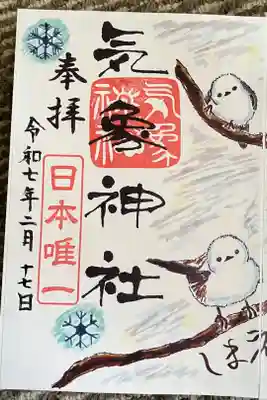 気象神社
奉拝
日本唯一
令和七年二月十七日
しま